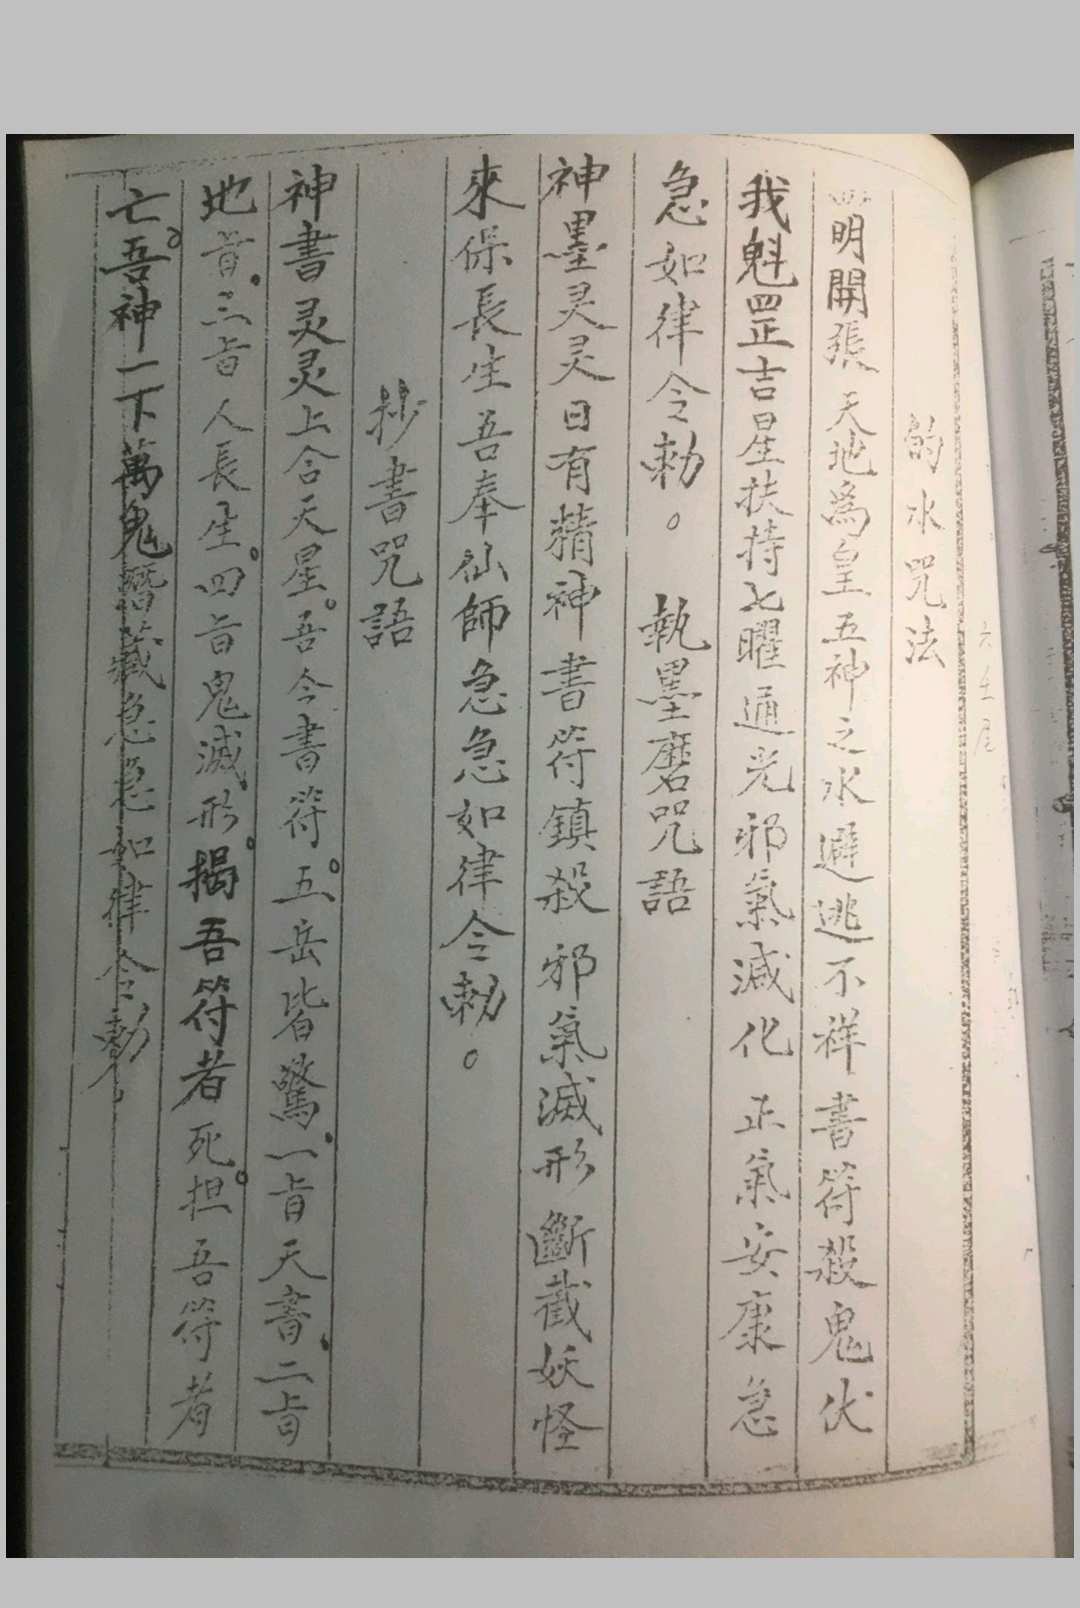 的水咒法
明開張天地為皇五神之水避逃不祥書符殺鬼伏
我魁罡吉星扶持七曜通光邪氣滅化正氣安康急
急如律令勅。執墨磨咒語
神墨灵灵日有精神書符鎮殺邪氣滅形斷截妖怪
來保長生吾奉仙師急急如律令勅。
抄書咒語
神書灵灵上合天星。吾今書符。五岳皆驚、一旨天書、二旨
地旨、三旨人長生。四旨鬼滅形。揭吾符者死。担吾符者
亡。吾神一下萬鬼潛藏急急如律令勅